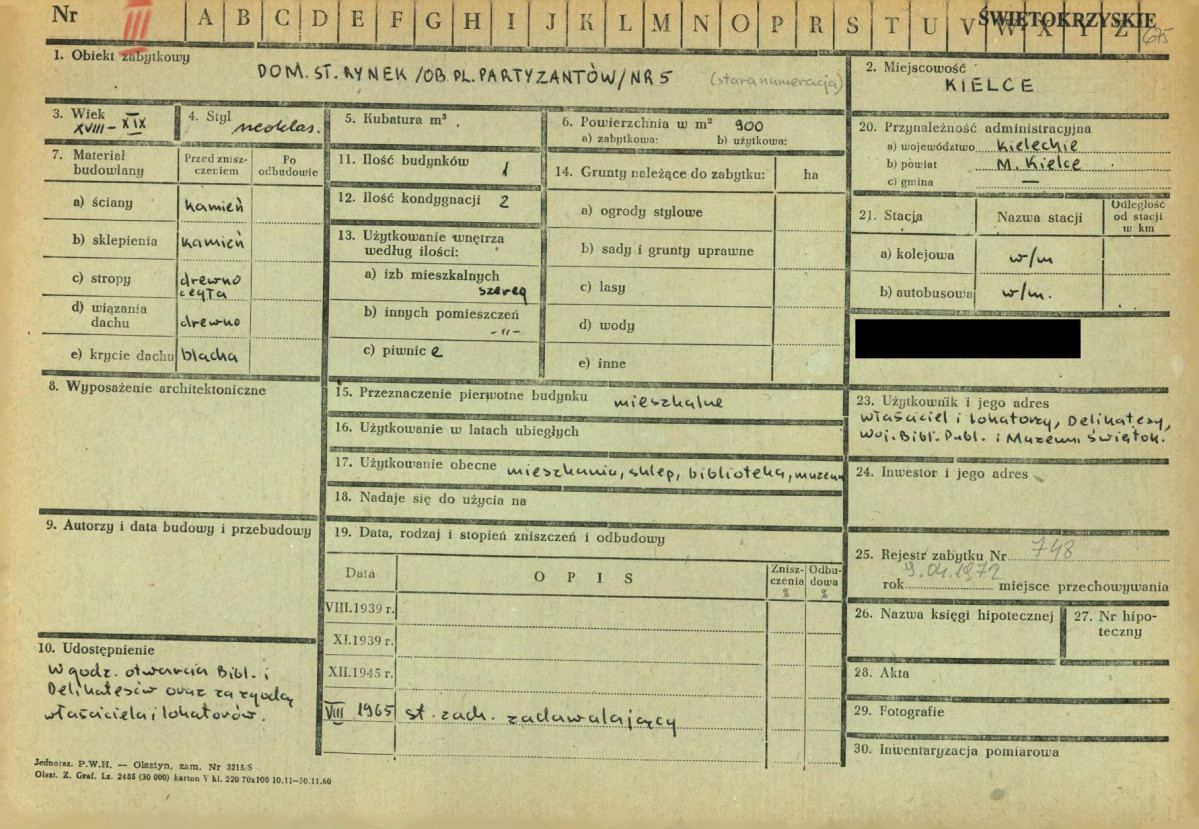 Nr III A B C D E F G H I J K L M N O P R S T U V W X Y Z
ŚWIĘTOKRZYSKIE
675
1. Obiekt zabytkowy
DOM. ST. RYNEK /OB. PL. PARTYZANTÓW/ NR 5 (stara numeracja)
2. Miejscowość
KIELCE
3. Wiek
XVIII – XIX
4. Styl
neoklas.
5. Kubatura m³
6. Powierzchnia w m² 900
a) zabytkowa: b) użytkowa:
20. Przynależność administracyjna
a) województwo Kieleckie
b) powiat M. Kielce
c) gmina —
7. Materiał budowlany
Przed znisz-
czeniem
Po
odbudowie
a) ściany kamień
b) sklepienia kamień
c) stropy drewno
cegła
d) wiązania
dachu drewno
e) krycie dachu blacha
11. Ilość budynków 1
12. Ilość kondygnacji 2
13. Użytkowanie wnętrza
według ilości:
a) izb mieszkalnych
szereg
b) innych pomieszczeń
-"-
c) piwnic 2
14. Grunty należące do zabytku: ha
a) ogrody stylowe
b) sady i grunty uprawne
c) lasy
d) wody
e) inne
21. Stacja Nazwa stacji
Odległość
od stacji
w km
a) kolejowa w/m
b) autobusowa w/m.
8. Wyposażenie architektoniczne
15. Przeznaczenie pierwotne budynku mieszkalne
16. Użytkowanie w latach ubiegłych
17. Użytkowanie obecne mieszkania, sklep, biblioteka, muzeum
18. Nadaje się do użycia na
23. Użytkownik i jego adres
właściciel i lokatorzy, Delikatesy,
Woj. Bibl. Publ. i Muzeum Świętok.
24. Inwestor i jego adres
9. Autorzy i data budowy i przebudowy
19. Data, rodzaj i stopień zniszczeń i odbudowy
Data OPIS
Znisz-
czenia
%
Odbu-
dowa
%
VIII.1939 r.
XI.1939 r.
XII.1945 r.
VIII 1965 st. zach. zadawalający
25. Rejestr zabytku Nr 748
9.04.1972
rok miejsce przechowywania
26. Nazwa księgi hipotecznej
27. Nr hipo-
teczny
28. Akta
29. Fotografie
30. Inwentaryzacja pomiarowa
10. Udostępnienie
W godz. otwarcia Bibl. i
Delikatesów oraz za zgodą
właściciela i lokatorów.
Jednoraz. P.W.H. — Olsztyn, zam. Nr 3215/S
Olszt. Z. Graf. Lz. 2485 (30 000) karton V kl. 220 70x100 10.11—30.11.60